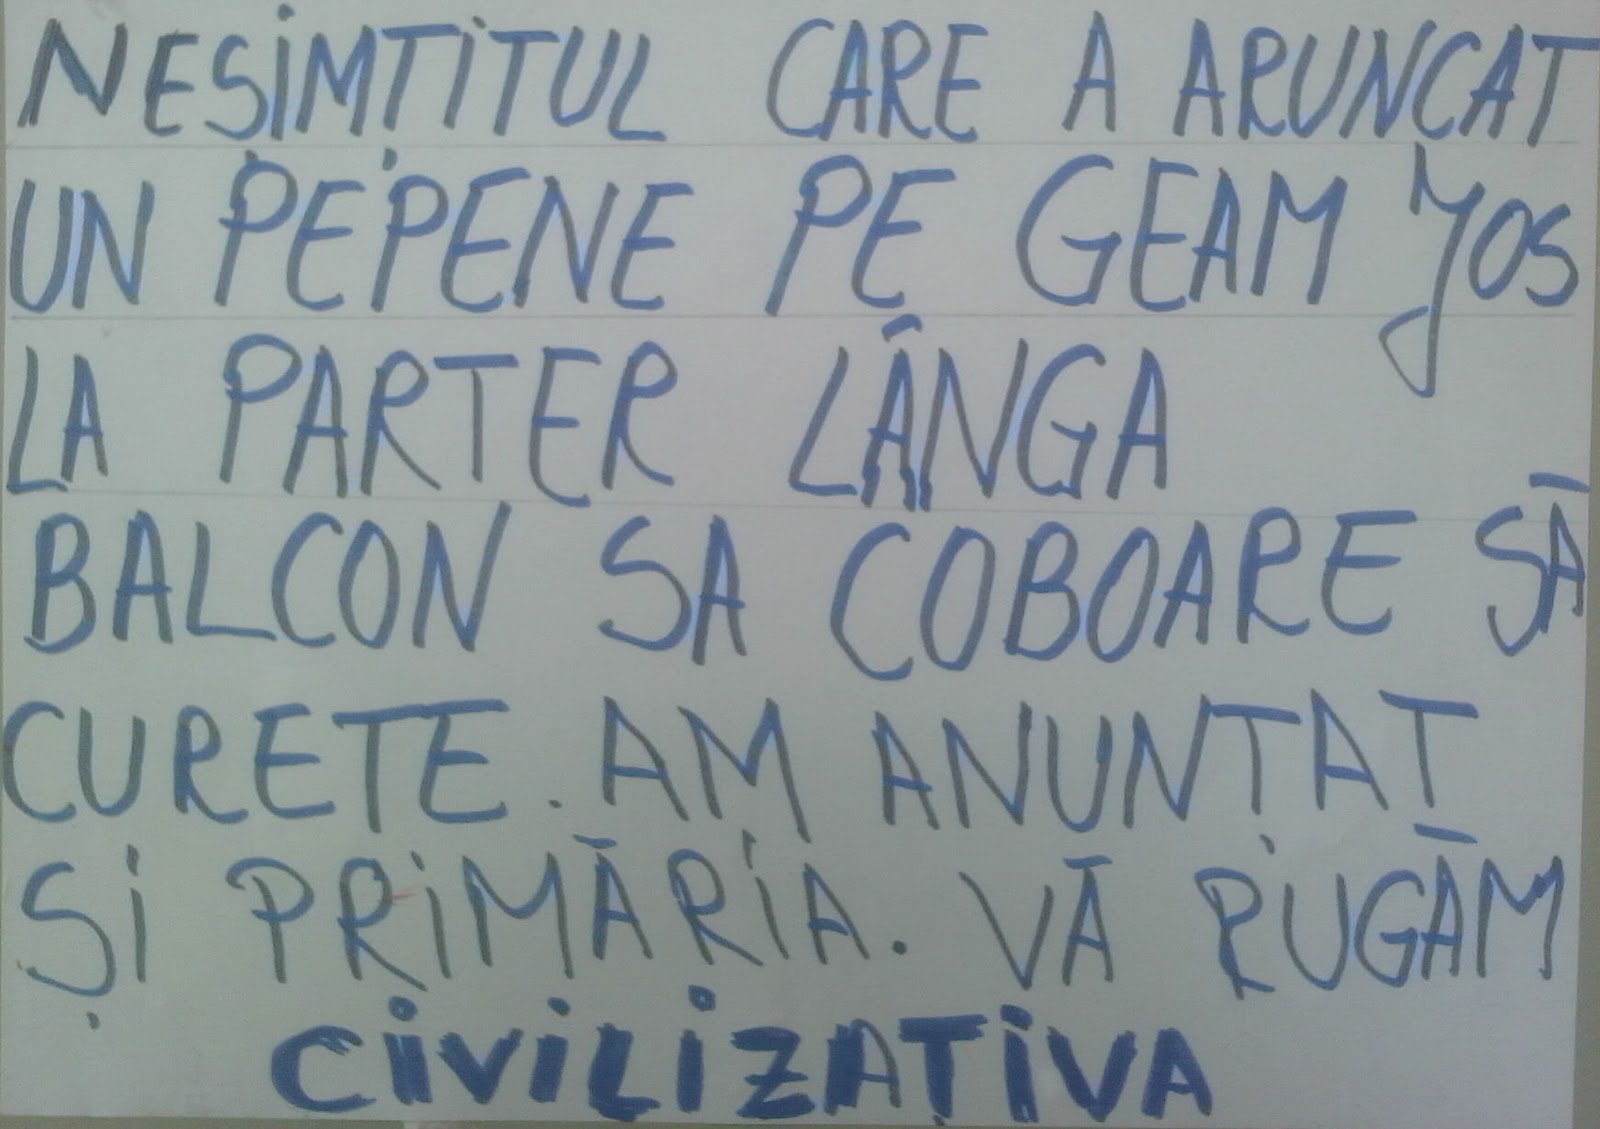 NEȘIMȚITUL CARE A ARUNCAT
UN PEPENE PE GEAM JOS
LA PARTER LÂNGA
BALCON SA COBOARE SĂ
CURETE. AM ANUNTAT
ȘI PRIMĂRIA. VĂ RUGĂM
CIVILIZAȚIVA